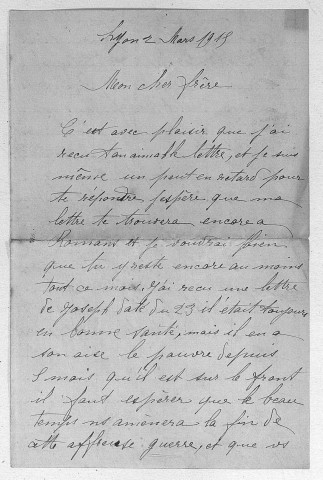 Lyon 2 Mars 1915
Mon cher frère
C'est avec plaisir que j'ai
recu ton aimable lettre, et je suis
même un peu en retard pour
te répondre, j'espère que ma
lettre te trouvera encore a
Romans et je voudrai bien
que tu y reste encore au moins
tout ce mois. J'ai recu une lettre
de Joseph daté du 23 il était toujours
en bonne santé, mais il en a
son aise le pauvre depuis
mois qu'il est sur le front
il faut espérer que le beau
temps ns amènera la fin de
cette affreuse guerre, et que vs